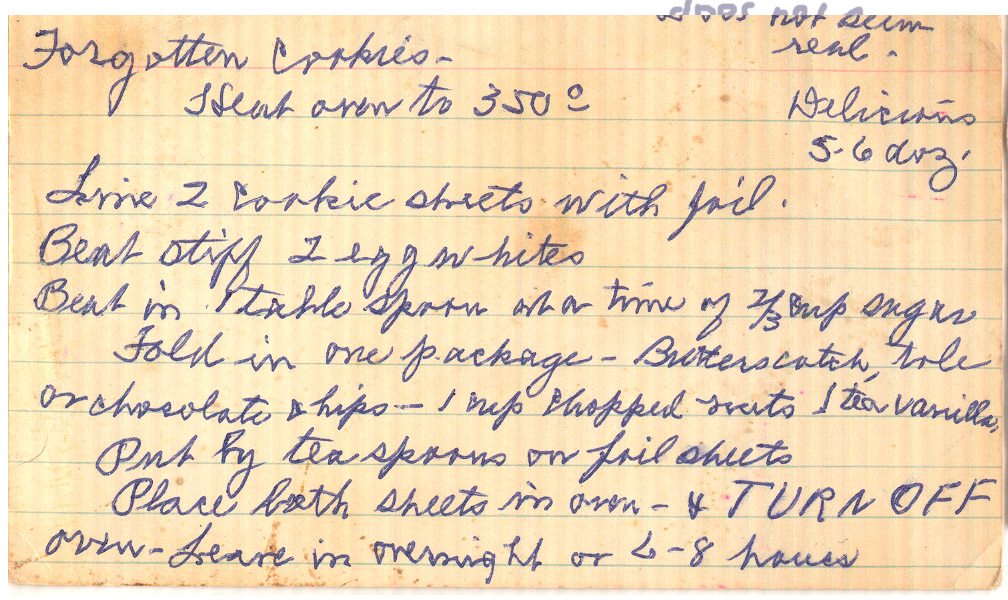 does not seem
real.
Forgotten Cookies-
Heat oven to 350°
Delicious
5-6 doz.
Line 2 cookie sheets with foil.
Beat stiff 2 egg whites
Beat in 1 table spoon at a time of 2/3 cup sugar
Fold in one package - Butterscotch,
or chocolate chips - 1 cup chopped nuts 1 tea vanilla,
Put by tea spoons on foil sheets
Place both sheets in oven - & TURN OFF
oven - Leave in overnight or 6-8 hours